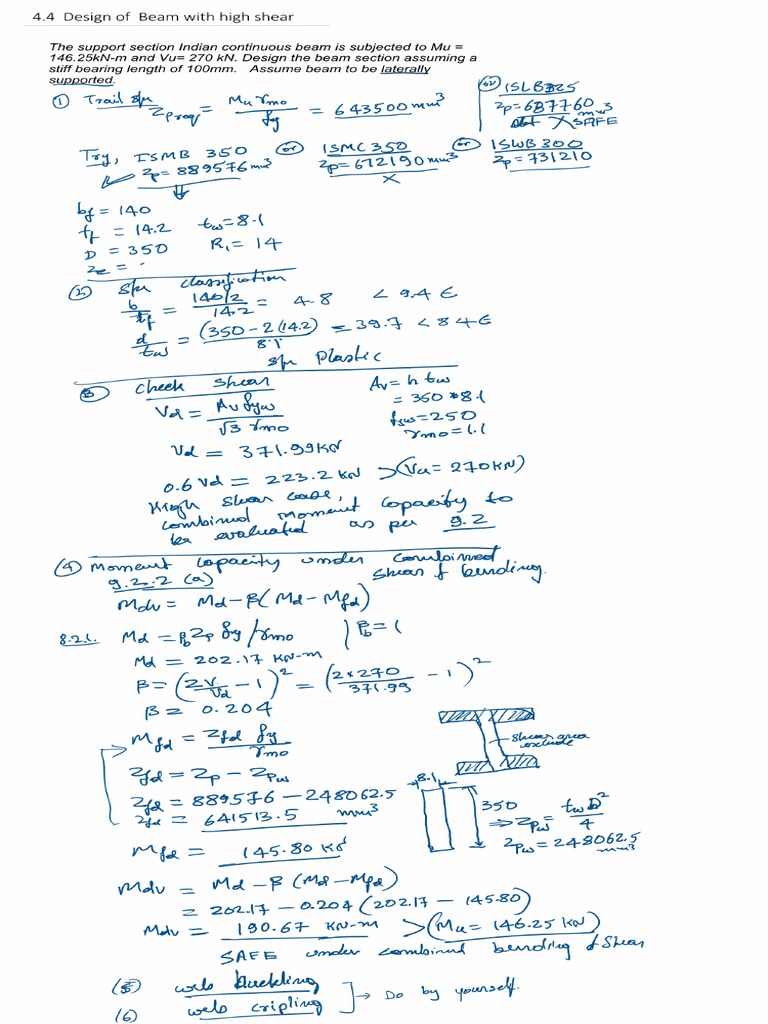 4.4 Design of Beam with high shear
The support section Indian continuous beam is subjected to Mu =
146.25kN-m and Vu= 270 kN. Design the beam section assuming a
stiff bearing length of 100mm. Assume beam to be laterally
supported.
① Trail s/n Zp req = Mu γmo / fy = 643500 mm³
(or) ISLB325
Zp=687760 mm³
X SAFE
Try, ISMB 350 (or) ISMC 350 (or) ISWB 300
Zp = 889576 mm³ Zp=672190 mm³ Zp=731210
X
bf = 140
tf = 14.2 tw=8.1
D = 350 R₁ = 14
Ze = -
② s/n classification
b/tf = (140/2)/14.2 = 4.8 < 9.4 ε
d/tw = (350-2(14.2))/8.1 = 39.7 < 84ε
s/n Plastic
③ Check shear
Av = h tw
= 350*8.1
fyw=250
γmo=1.1
Vd = Av fyw / √3 γmo
Vd = 371.99 KN
0.6 Vd = 223.2 kN > (Vu = 270KN)
High shear case,
combined moment capacity to
be evaluated as per 9.2
④ Moment capacity under combined
shear & bending.
9.2.2 (a)
Mdv = Md-β(Md-Mfd)
8.2.1. Md = βb Zp fy/γmo | βb=1
Md = 202.17 KN-m
β = (2V/Vd - 1)² = (2*270/371.99 - 1)²
β = 0.204
Mfd = Zfd fy / γmo
shear area
exclude
Zfd = Zp - Zpw
8.1
Zfd = 889576 - 248062.5
Zfd = 641513.5 mm³
350 ⇒ Zpw = tw D²/4
Zpw = 248062.5 mm³
Mfd = 145.80 KN
Mdv = Md - β (Md-Mfd)
= 202.17 - 0.204 (202.17 - 145.80)
Mdv = 190.67 KN-m > (Mu = 146.25 KN)
SAFE under combined bending & shear
(5) web buckling
(6) web cripling
] → Do by yourself.